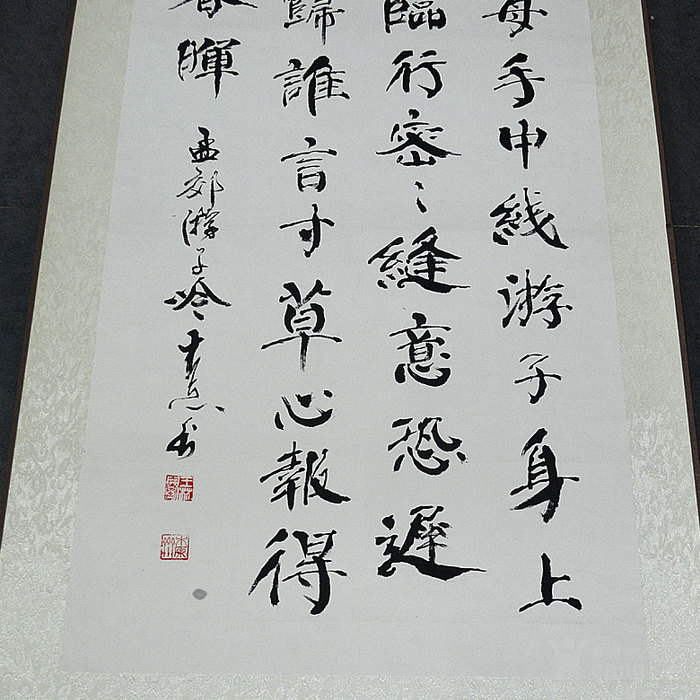 母手中线游子身上
臨行密〻縫意恐遲
歸誰言寸草心報得
春暉
孟郊游子吟